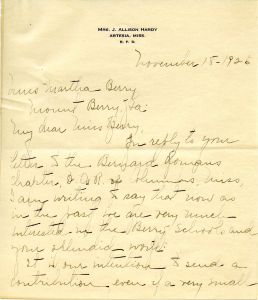 MRS. J. ALLISON HARDY
ARTESIA, MISS.
R. F. D.
November 15 - 1926
Miss Martha Berry
Mount Berry, Ga:
My dear Miss Berry,
In reply to your
letter to the Bernard Romans
Chapter, D.A.R. of Columbus, Miss.
I am writing to say that now as
in the past we are very much
interested in the Berry Schools and
your splendid work.
It is our intention to send a
contribution even if a very small